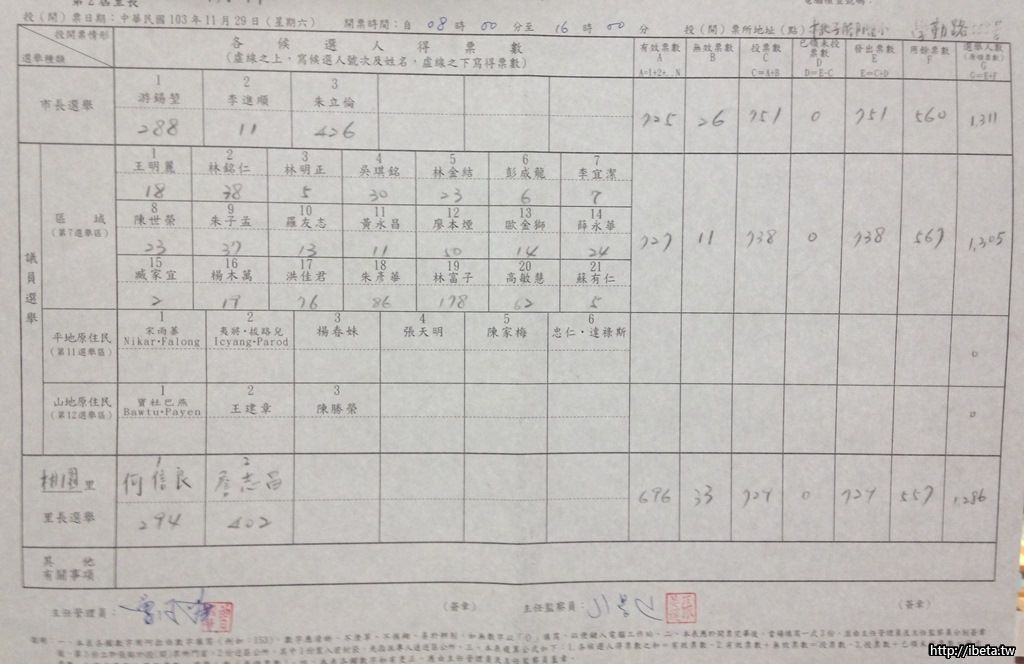 第2屆里長
投(開)票日期:中華民國103年11月29日(星期六) 開票時間:自08時00分至16時00分 投(開)票所地址(點)
投開票情形
選舉種類
各候選人得票數
(虛線之上,寫候選人號次及姓名,虛線之下寫得票數)
有效票數 A A=1+2+...N
無效票數 B
投票數 C C=A+B
已領未投票數 D D=E-C
發出票數 E E=C+D
用餘票數 F
選舉人數 G G=E+F
市長選舉
1 2 3
游錫堃 李進順 朱立倫
288 11 426
725 26 751 0 751 560 1,311
議員選舉
區域
(第7選舉區)
1 2 3 4 5 6 7
王明麗 林銘仁 林明正 吳琪銘 林金結 彭成龍 李宜潔
18 38 5 30 23 6 7
8 9 10 11 12 13 14
陳世榮 朱子孟 羅友志 黃永昌 廖本煙 歐金獅 薛永華
23 37 13 11 50 14 24
15 16 17 18 19 20 21
臧家宜 楊木萬 洪佳君 朱彥華 林富子 高敏慧 蘇有仁
2 19 76 86 178 62 5
727 11 738 0 738 567 1,305
平地原住民
(第11選舉區)
1 2 3 4 5 6
宋雨蓁 夷將‧拔路兒 楊春妹 張天明 陳家梅 忠仁‧達祿斯
Nikar‧Falong Icyang‧Parod
0
山地原住民
(第12選舉區)
1 2 3
寶杜巴燕 王建章 陳勝榮
Bawtu‧Payen
0
桃園里
里長選舉
1 2
何信良 詹志昌
294 402
696 33 729 0 729 557 1,286
其他
有關事項
主任管理員: (簽章) 主任監察員: (簽章)
http://ibeta.tw